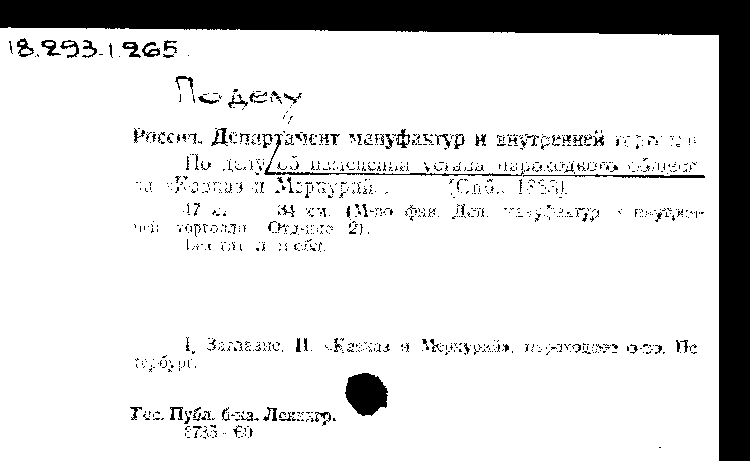 18.293.1.265
По делу
Россия. Департамент мануфактур и внутренней торговли
По делу об изменении устава пароходного общест-
ва «Кавказ и Меркурий». [Спб., 1868].
17 с. 34 см. (М-во фин. Деп. мануфактур и внутрен-
ней торговли. Отд-ние 2).
Без тит. л. и обл.
I. Заглавие. II. «Кавказ и Меркурий», пароходное о-во. Пе-
тербург.
Гос. Публ. б-ка. Ленингр.